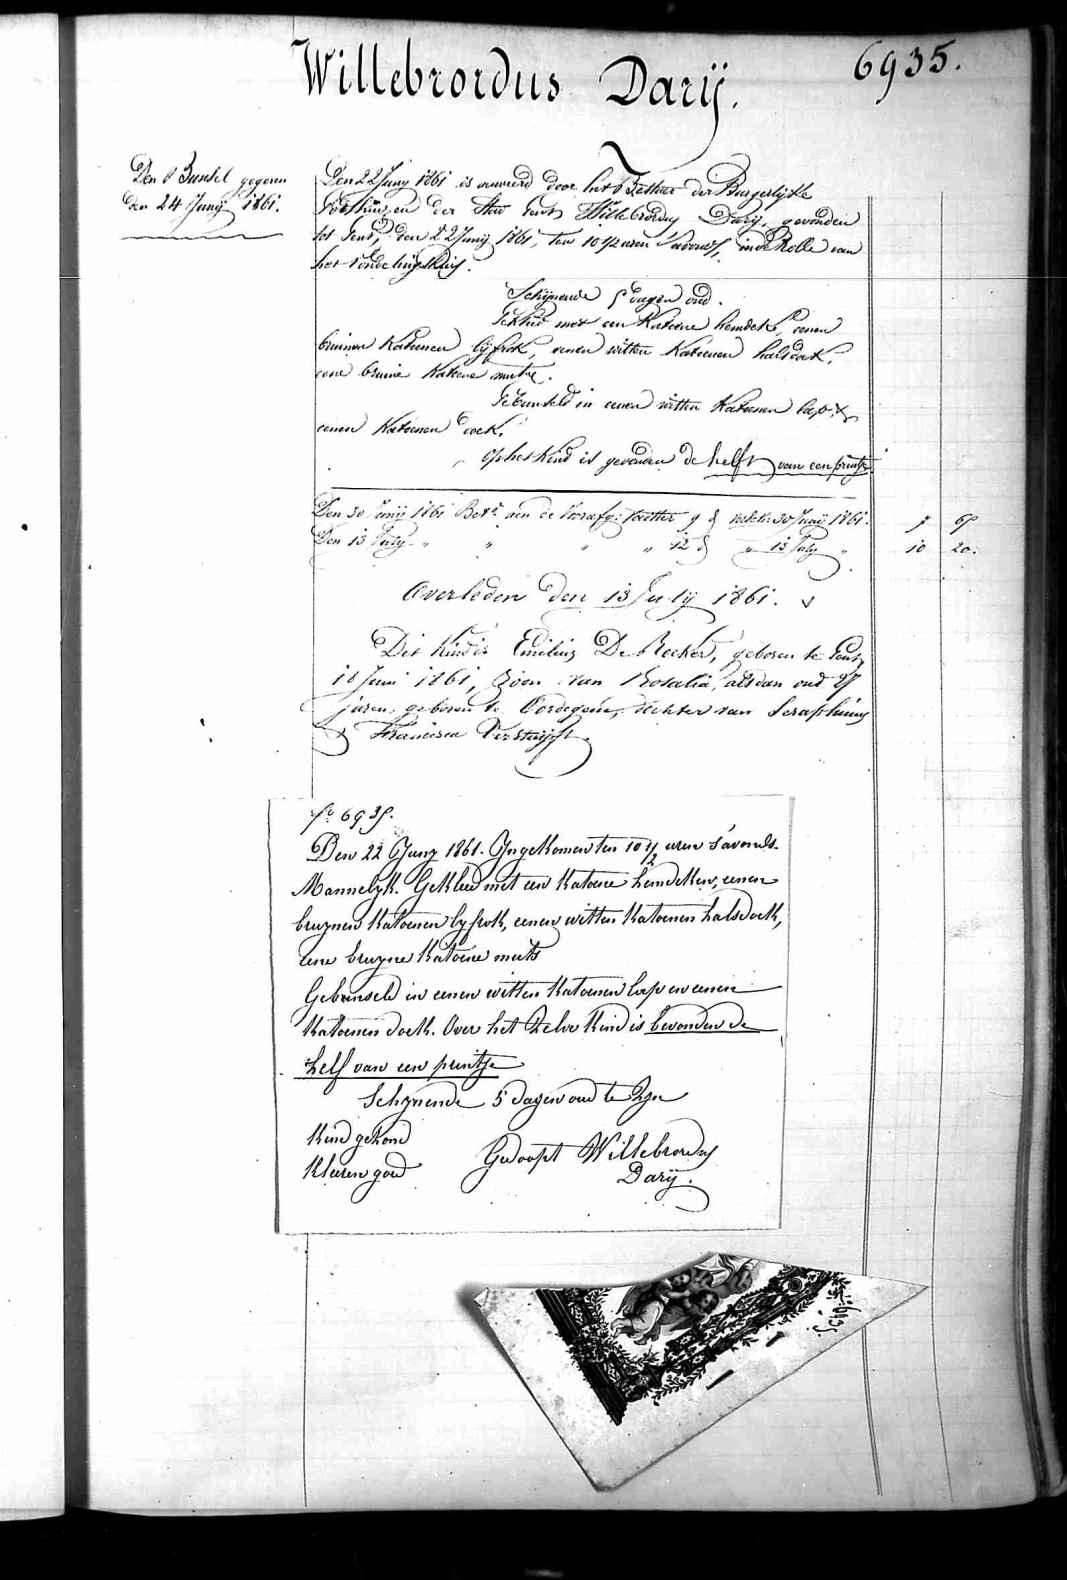 Willebrordus Darÿ.
6935.
Den Bunsel gegeven
den 24 Junÿ 1861.
Den 22 Juny 1861 is door het der Burgerlÿke
der Stad Gent Willebrordus Darÿ, gevonden
tot Gent, den 22 Junÿ 1861, ten 10 1/2 uren 'savonds, in de Rolle van
het Vondelingshuis.
Schÿnende 5 dagen oud.
Gekleed met een Katoene hemdeke, eenen
bruinen Katoenen lÿfrok, eenen witten Katoenen halsdoek,
eene bruine Katoene muts.
Gebunseld in eenen witten Katoenen lap &
eenen Katoenen doek.
Op het Kind is gevonden de helft van een printje.
Den 30 Junÿ 1861 aan de 9 30 Junÿ 1861.
Den 13 July " " " " 12 " 13 July "
10 20.
Overleden den 13 July 1861.
Dit Kind is Emilius De , geboren te Gent,
18 Juni 1861, Zoon van Rosalia, alsdan oud 27
jaren, geboren te Oordegem, dochter van Seraphinus
& Francisca Verstuÿft.
fo 6935.
Den 22 Juny 1861. Ingekomen ten 10 1/2 uren s'avonds.
Mannelyk. Gekleed met een Katoene hemdeken, eenen
bruynen Katoenen lyfrok, eenen witten Katoenen halsdoek,
eene bruyne Katoene muts
Gebunseld in eenen witten Katoenen lap en eenen
Katoenen doek. Over het Zelve Kind is bevonden de
helf van een printje
Schynende 5 dagen oud te Zyn
Kind gezond
Gedoopt Willebrordus
Kleeren goed
Darÿ.